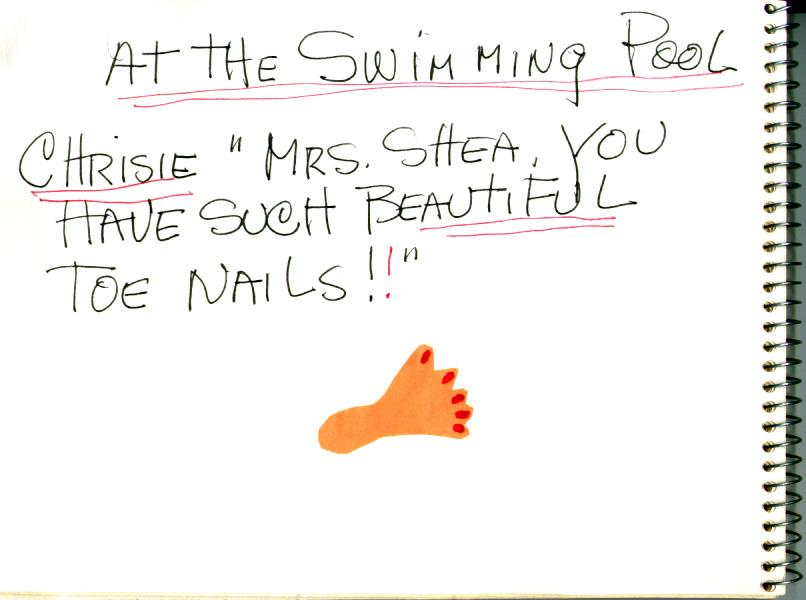 AT THE SWIMMING POOL
CHRISIE " MRS. SHEA, YOU
HAVE SUCH BEAUTIFUL
TOE NAILS!!"